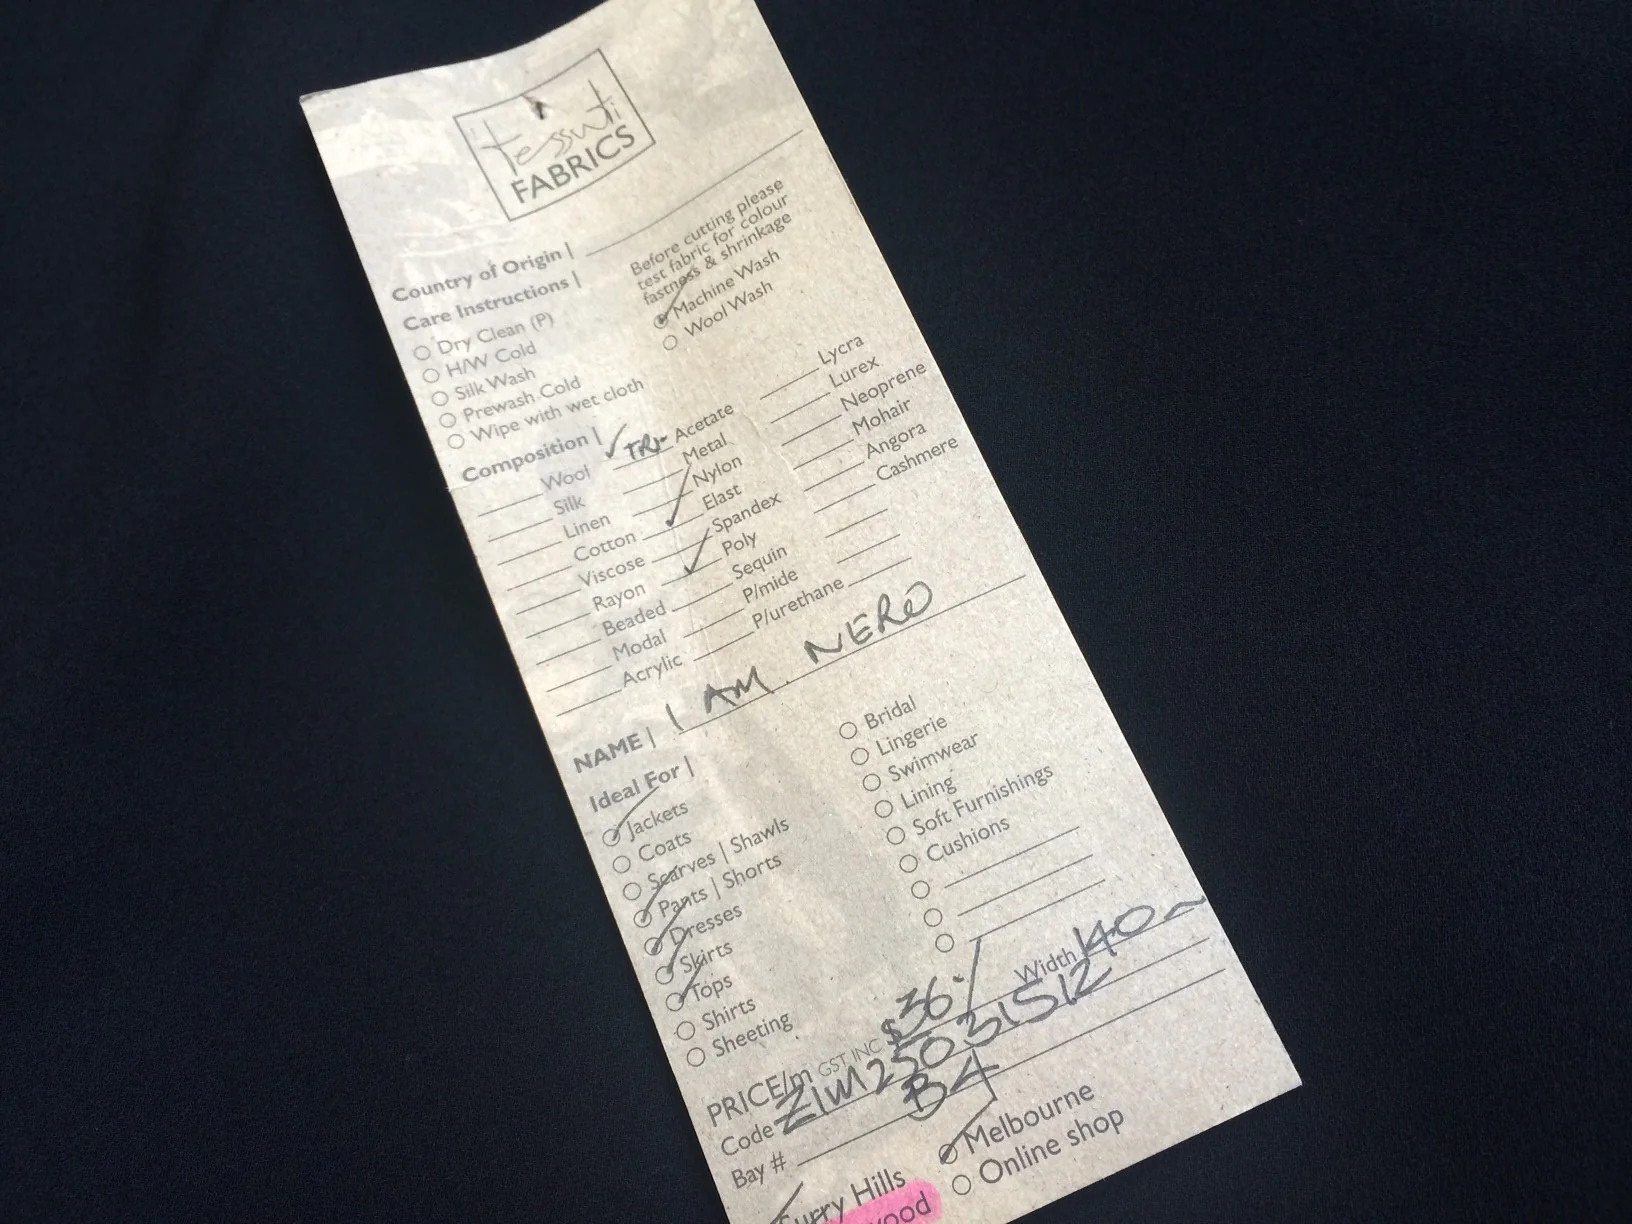 tessuti
FABRICS
Country of Origin |
Care Instructions |
Before cutting please
test fabric for colour
fastness & shrinkage
Dry Clean (P)
H/W Cold
Silk Wash
Prewash Cold
Wipe with wet cloth
Machine Wash
Wool Wash
Composition |
Wool
Silk
Linen
Cotton
Viscose
Rayon
Beaded
Modal
Acrylic
TRI- Acetate
Metal
Nylon
Elast
Spandex
Poly
Sequin
P/mide
P/urethane
Lycra
Lurex
Neoprene
Mohair
Angora
Cashmere
NAME | I AM NERO
Ideal For |
Jackets
Coats
Scarves | Shawls
Pants | Shorts
Dresses
Skirts
Tops
Shirts
Sheeting
Bridal
Lingerie
Swimwear
Lining
Soft Furnishings
Cushions
PRICE/m GST INC $36.- Width 140
Code ZIM25031512
Bay # B4
Surry Hills
Melbourne
Online shop